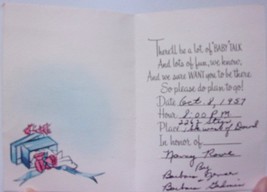 There'll be a lot of "BABY" TALK
And lots of fun, we know,
And we sure WANT you to be there
So please do plan to go!
Date Oct. 8, 1957
Hour 8:00 P.M
Place
In honor of
Nancy Rowe
By
Barbara
Barbara